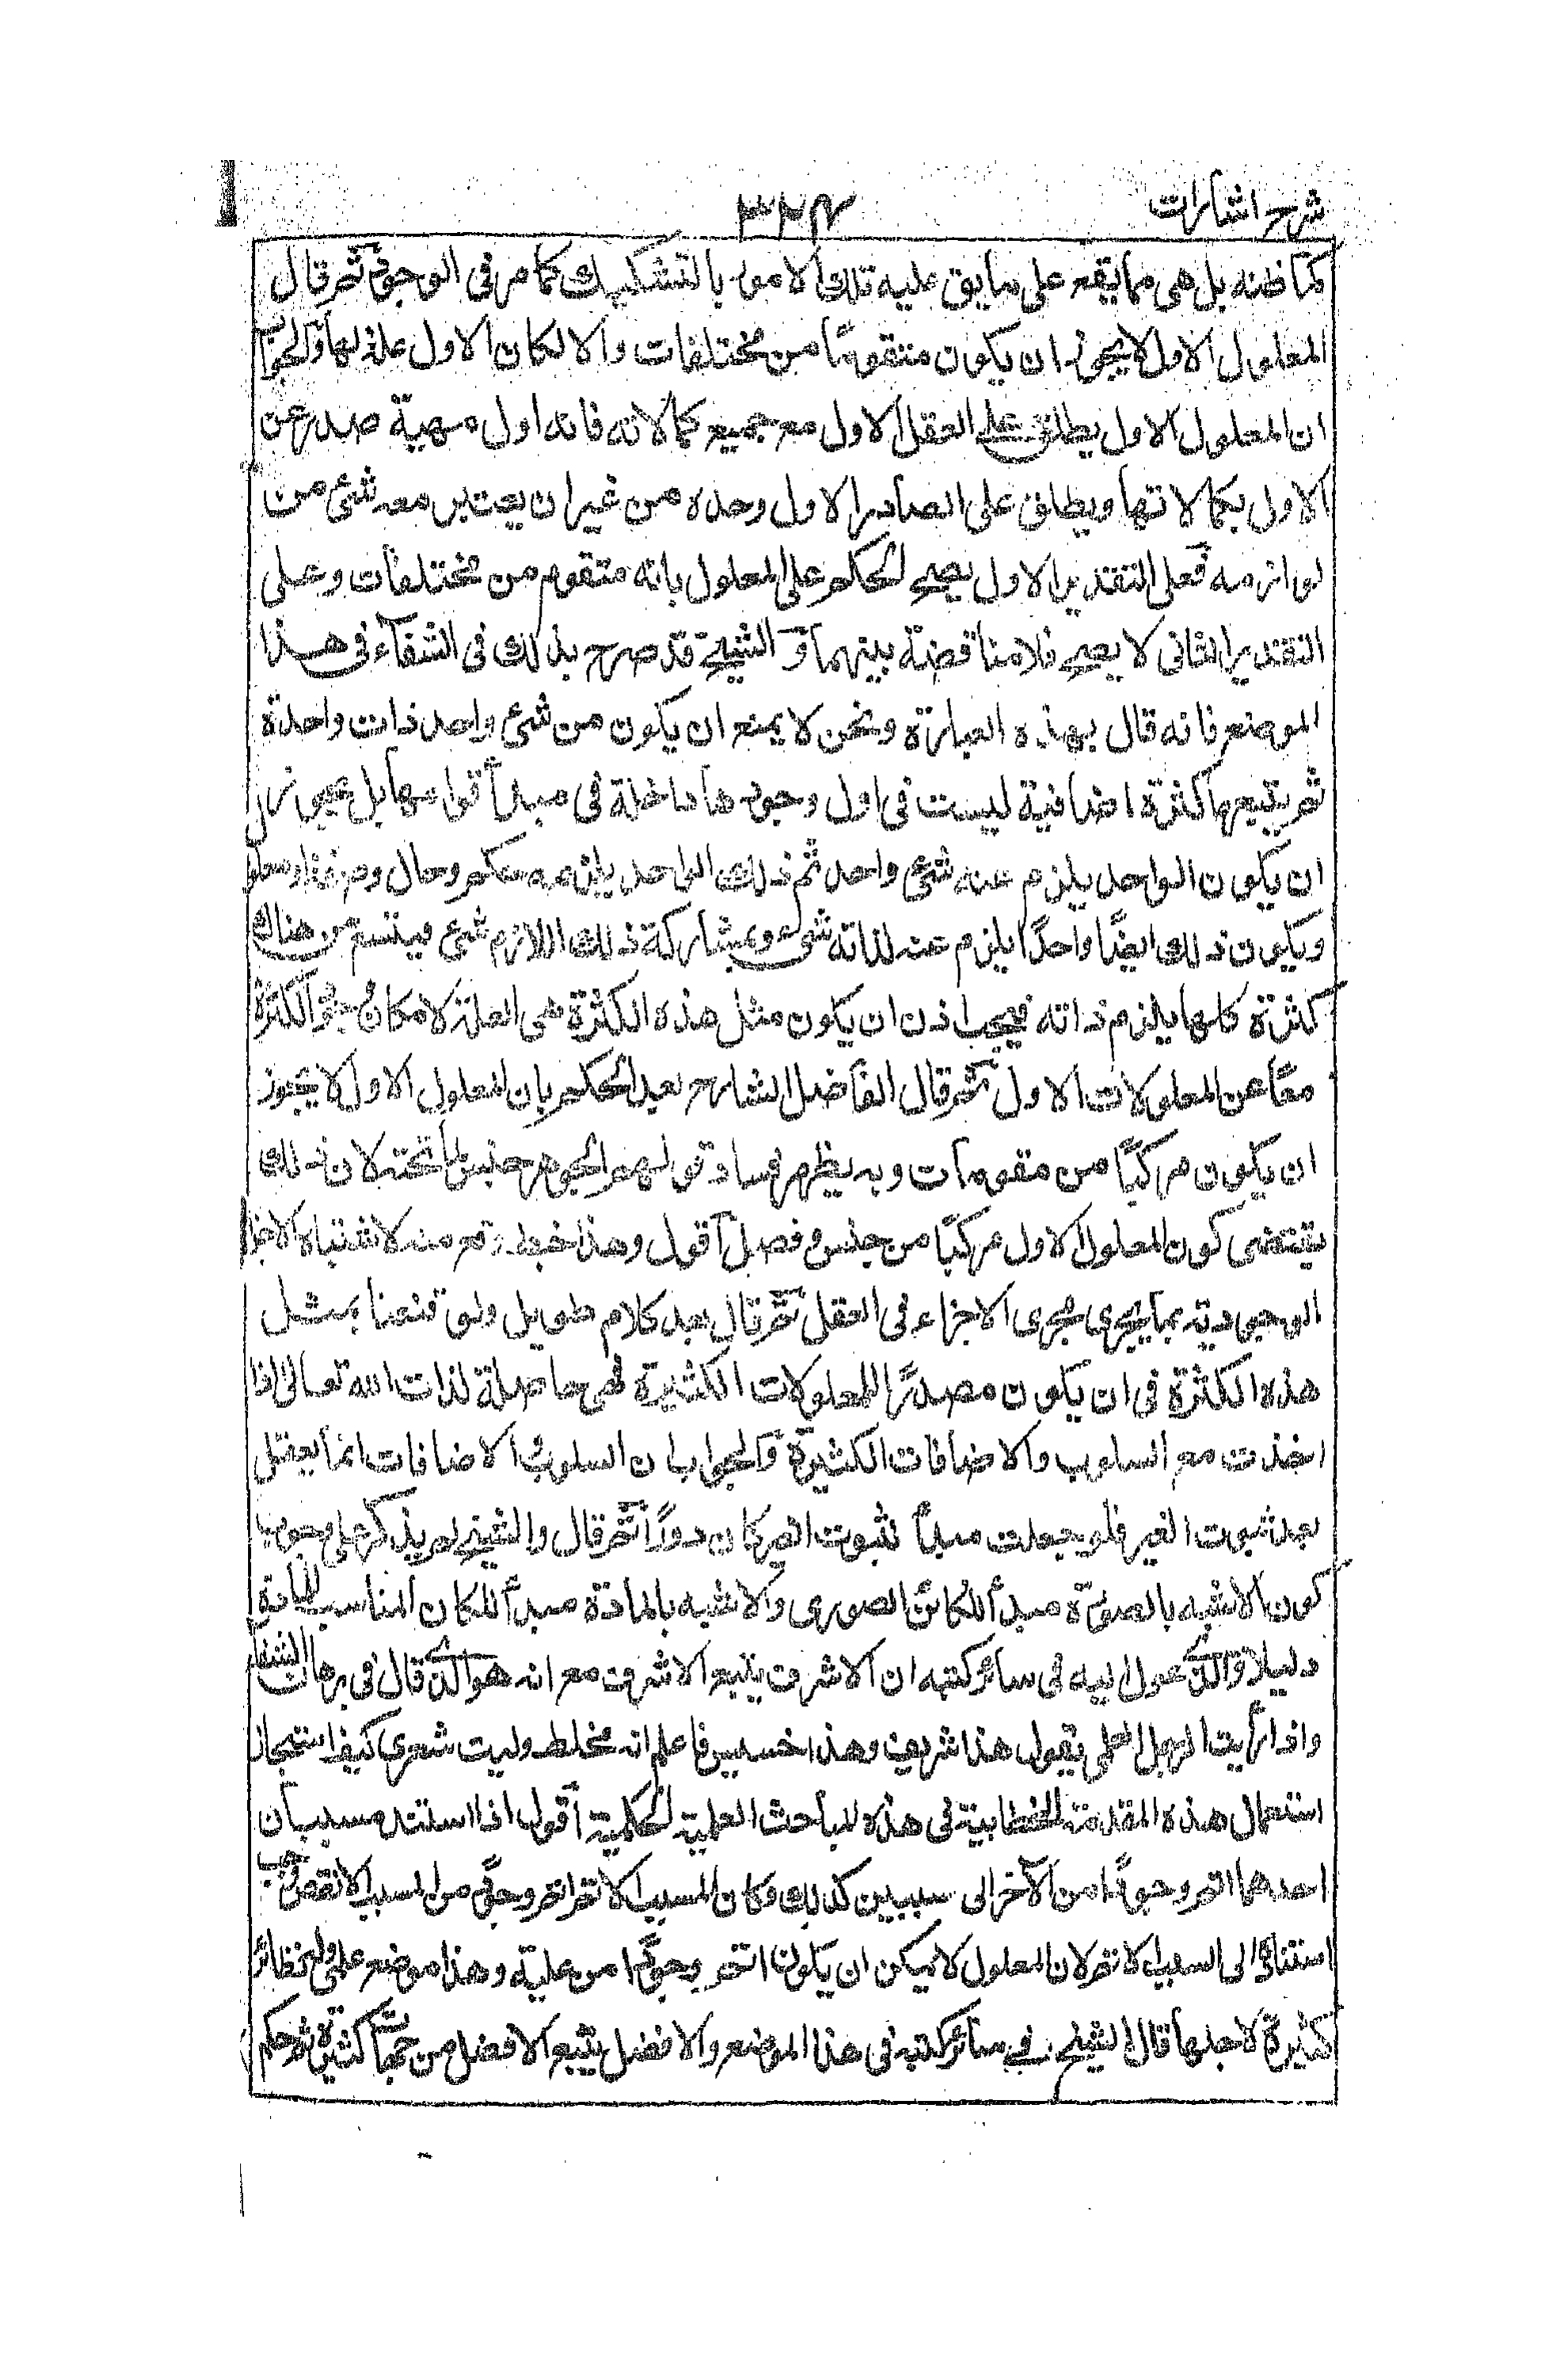 شرح اشارات
٣٢٤
كما ظنه بل هى مما يقع على ما يقع عليه تلك الامور بالتشكيك كما مر فى الوجود ثم قال
المعلول الاول لا يجوز ان يكون متقومًا من مختلفات والا لكان الاول علة لها والجواب
ان المعلول الاول يطلق على العقل الاول مع جميع كمالاته فانه اول مهية صدر عن
الاول بكمالاتها ويطلق على الصادر الاول وحده من غير ان يعتبر معه شئ من
لوازمه فعلى التقدير الاول يصح الحكم على المعلول بانه متقوم من مختلفات وعلى
التقدير الثانى لا يصح فلا مناقضة بينهما والشيخ قد صرح بذلك فى الشفاء فى هذا
الموضع فانه قال بهذه العبارة ونحن لا يمنع ان يكون من شئ واحد ذات واحدة
ثم يتبعها كثرة اضافية ليست فى اول وجودها داخلة فى مبدأ قوامها بل يجوز
ان يكون الواحد يلزم عنه شئ واحد ثم ذلك الواحد يلزمه حكم وحال وصفة او معلول
ويكون ذلك ايضًا واحدًا يلزم عنه لذاته شئ وبمشاركة ذلك اللازم شئ فيتبع من هناك
كثرة كلها يلزم ذاته فيجب اذن ان يكون مثل هذه الكثرة هى العلة لامكان وجود الكثرة
معًا عن المعلولات الاول ثم قال الفاضل الشارح بعد الحكم بان المعلول الاول لا يجوز
ان يكون مركبًا من مقومات وبه يظهر فساد قولهم الجوهر جنس لما تحته لان ذلك
يقتضى كون المعلول الاول مركبًا من جنس وفصل اقول وهذا خبط وقع منه لاشتباه الاجزاء
الوجودية بما يجرى مجرى الاجزاء فى العقل ثم قال بعد كلام طويل ولو قنعنا بمثل
هذه الكثرة فى ان يكون مصدرًا للمعلولات الكثيرة فهى حاصلة لذات الله تعالى اذا
اخذت مع السلوب والاضافات الكثيرة والجواب ان السلوب والاضافات انما يعقل
بعد ثبوت الغير فلو جعلت مبدأ لثبوت الغير كان دورًا ثم قال والشيخ لم يذكر على وجوب
كون الاشبه بالصورة مبدأ للكائن الصورى والاشبه بالمادة مبدأ للكان المناسب للمادة
دليلا والذى عول اليه فى سائر كتبه ان الاشرف يتبع الاشرف مع انه هو الذى قال فى برهان الشفا
واذا رأيت الرجل العلمى يقول هذا شريف وهذا خسيس فاعلم انه مخلط وليت شعرى كيف استجاز
استعمال هذه المقدمة الخطابية فى هذه المباحث العلمية الحكمية اقول اذا استند مسببان
احدهما اتم وجودًا من الآخر الى سببين كذلك وكان المسبب الاتم اتم وجودًا من المسبب الانقص وجب
استناده الى السبب الاتم لان المعلول لا يمكن ان يكون اتم وجودًا من علية وهذا موضع علمى وله نظائر
كثيرة لاجلها قال الشيخ فى سائر كتبه فى هذا الموضع والافضل يتبع الافضل من جهات كثيرة ثم حكم